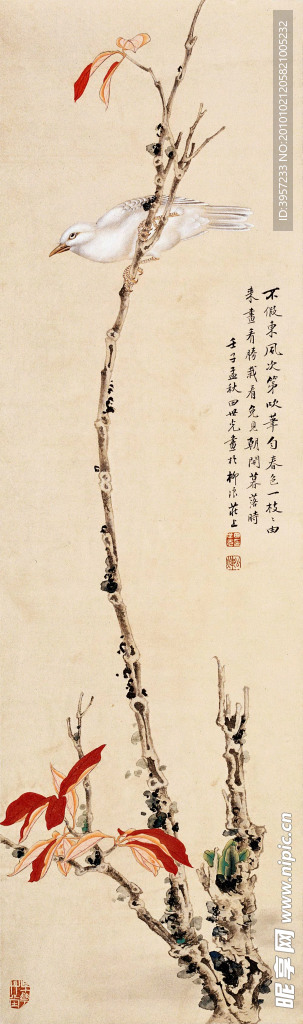 不假东風次第吹筆匀春色一枝〻由
来畫看勝栽看免見朝開暮落時
壬子孟秋田世光畫於柳浪莊上
ID:3957233 NO:20101021205821005232
昵享网 www.nipic.cn